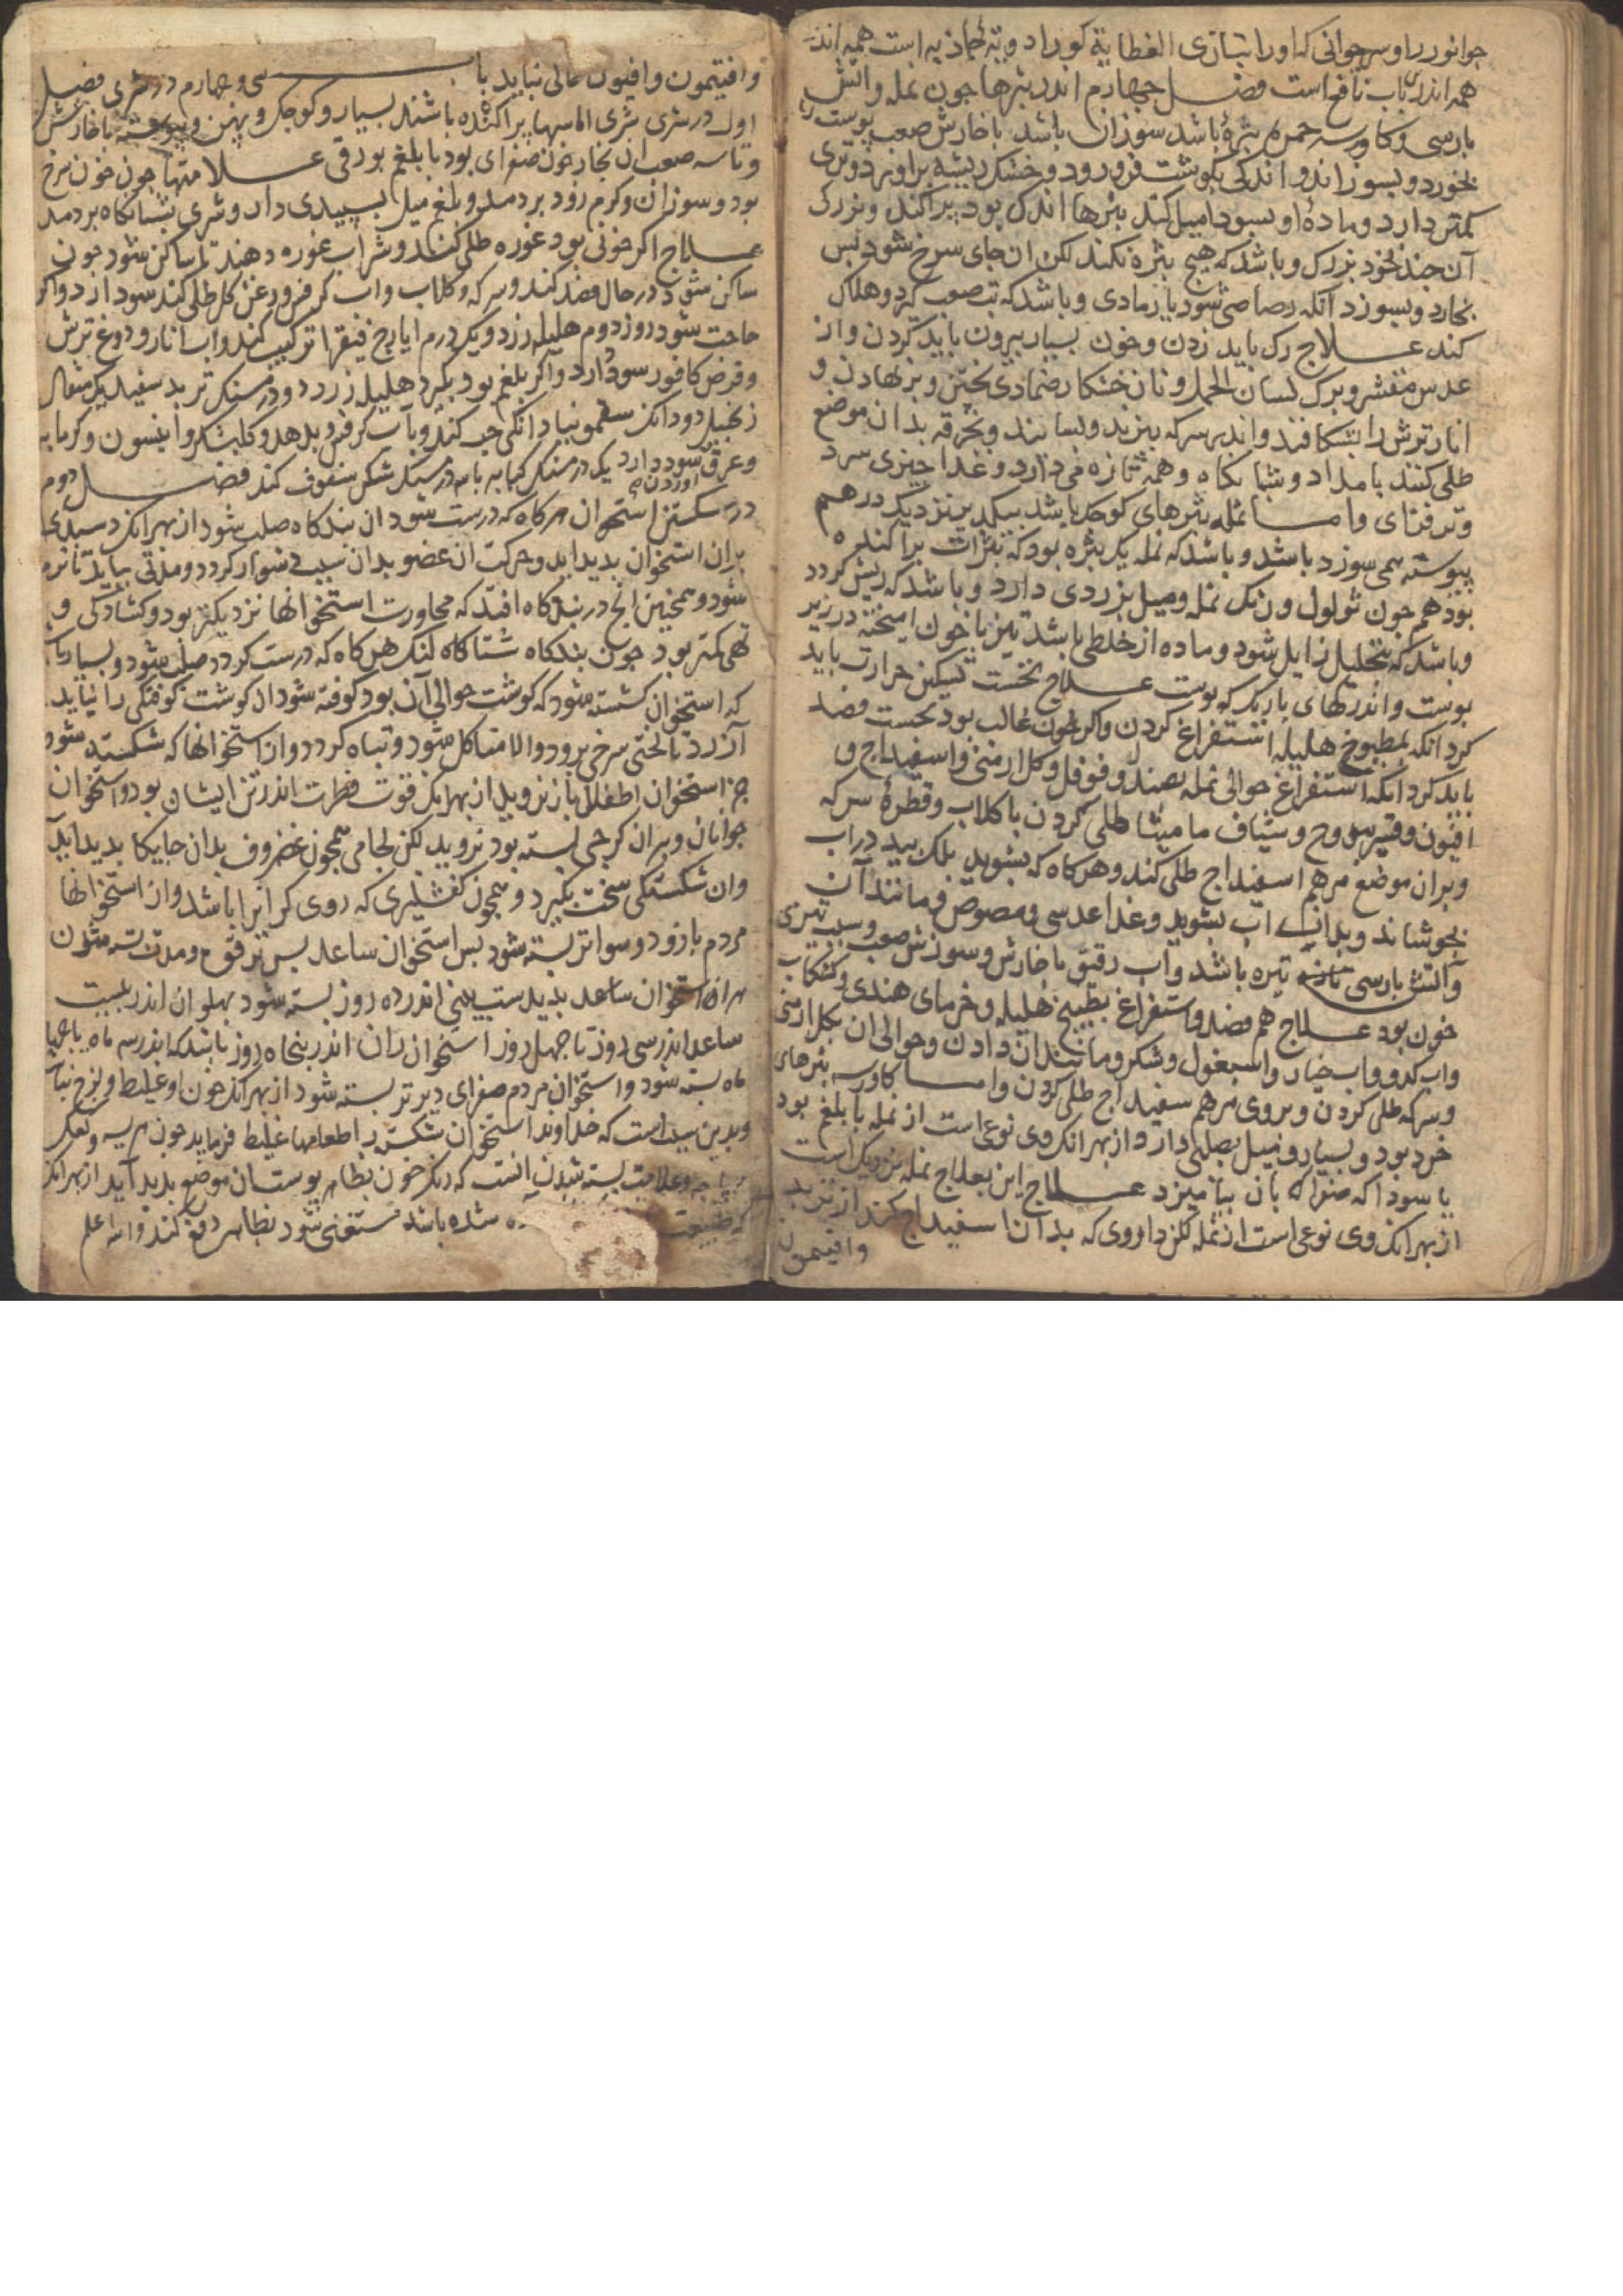 جوانورد را و سرجوانی که او را بتازی العظایة کویند ادویة جاذبه است همه اند
همه اندرین باب نافع است فصل چهارم اندر بثرها جون نمله واتش
بارسی و کاورسه جمره بثرهٔ باشد سوزان باشد با خارش صعب پوست را
بخورد و بسوزاند و اندکی بکوشت فرو رود و خشک ریشه براورد و تری
کمتر دارد و مادهٔ او بسودا میل کند بثرها اندک بود پراکنده و بزرک
آن جند نخود بزرک و باشد که هیج بثره نکند لکن ان جای سرخ شود بس
بخارد و بسوزد آنکه رصاصی شود یا رمادی و باشد که تب صعب کرد و هلاک
کند علاج رک باید زدن و خون بسیار بیرون باید کردن و از
عدس مقشر و برک لسان الحمل و نان خشکار ضمادی پختن و برنهادن و
انار ترش را بشکافند و اندر سرکه بپزند و بسایند و بخرقه بدان موضع
طلی کنند بامداد و شبانکاه و همه تازه می دارد و غذا چیزی سرد
و تر فرمای واما نمله بثرهای کوجک باشد بیکدیکر نزدیک درهم
پیوسته همی سوزد باشد و باشد که نمله یک بثره بود که بثرات براکنده
بود هم جون ثولول و رنک نمله و میل بزردی دارد و باشد که ریش کردد
و باشد که بتحلیل زایل شود و ماده از خلطی باشد تیز با خون امیخته در زیر
بوست و اندر رکهای باریک که بوست علاج نخست تسکین حرارت باید
کرد انکه بمطبوخ هلیله استفراغ کردن و اکر خون غالب بود نخست فصد
باید کرد انکه استفراغ حوالی نمله بصندل و فوفل و کل ارمنی و اسفیداج و
افیون و قیرس وج و شیاف مامیثا طلی کردن با کلاب و قطرهٔ سرکه
و بران موضع مرهم اسفیداج طلی کند و هرکاه که بشوید بلک بید در اب
بجوشاند و بدان اب بشوید و غذا عدسی و مصوص و مانند آن
و آتش بارسی تیره باشد و آب رقیق با خارش و سوزش صعب و سبب تیزی
خون بود علاج هم فصد و استفراغ بطبیخ هلیله و خرمای هندی و کشکاب
واب کدو و اب خیار و اسبغول و شکر و مانند ان دادن و حوالی ان بکل ارمنی
و سرکه طلی کردن و بروی مرهم سفیداج طلی کردن واما کاورسه بثرهای
خرد بود و بسیار و میل بصلبی دارد و از بهر انک وی نوعی است از نمله با بلغم بود
یا سودا که صفرا که بان بیامیزد علاج این بعلاج نمله نزدیک است
از بهر انک وی نوعی است از نمله لکن داروی که بدان اسفیداج کند از تربد
وافیتمون
وافیتمون وافیون خالی نباید باب سی و چهارم در شری فصل
اول در شری شری اماسها پراکنده باشند بسیار و کوجک و پهن و پیوسته با خارش
و تاسه صعب ان بخار خون صفرای بود با بلغم بورقی علامتها جون خون سرخ
بود و سوزان و کرم زود بردمد و بلغم میل بسپیدی دارد و شری بشبانکاه بردمد
علاج اکر خونی بود غوره طلی کنند و شراب غوره دهند تا ساکن شود جون
ساکن شود در حال فصد کند و سرکه و کلاب و اب کرفس و روغن کل طلی کند سود دارد و اکر
حاجت شود روز دوم هلیله زرد و یک درم ایارج فیقرا ترکیب کند و اب انار و دوغ ترش
و قرص کافور سود دارد و اکر بلغم بود بکیرد هلیله زرد دو درمسنک تربد سفید یک مثقال
زنجبیل دو دانک سقمونیا دانکی حب کند و بآب کرفس بدهد و کلبشکر و انیسون و کرمابه
و عرق اوردن سود دارد یک درمسنک کبابه با سه درمسنک شکر سفوف کند فصل دوم
در شکستن استخوان هرکاه که درست شود ان بندکاه صلب شود از بهر انک دسبدی
بران استخوان بدید اید و حرکت ان عضو بدان سبب دشوار کردد و مدتی بباید تا نرم
شود و همچنین انج در بندکاه افتد که مجاورت استخوانها نزدیکتر بود و کشادکی و
تهی کمتر بود جون بندکاه شتالنک هرکاه که درست کردد صلب شود و بسیار باشد
که استخوان شکسته شود که کوشت حوالی آن بود کوفته شود ان کوشت کوفتکی را نباید
آزرد تا لختی سرخی برود والا متاکل شود و تباه کردد و از استخوانها که شکسته شود
جز استخوان اطفال باز نروید از بهر انک قوت فطرت اندر تن ایشان بود و استخوان
جوانان و پیران کرچی بسته بود نروید لکن لحامی همچون غضروف بدان جایکا بدید اید
وان شکستکی سخت بکیرد و همچون کفشیری که روی کر انرا باشد و از استخوانها
مردم بازو دو سوا تر بسته شود بس استخوان ساعد بس ترقوه و مدت بسته شدن
هر استخوان ساعد بدیدست بینی اندر ده روز بسته شود بهلو ان اندر بیست
ساعد اندر سی روز تا چهل روز استخوان ران اندر پنجاه روز باشد که اندر سه ماه یا چهار
ماه بسته شود و استخوان مردم صفرای دیرتر بسته شود از بهر انک خون او غلیظ و لزج نباشد
و بدین سبب است که خداوند استخوان شکسته را طعامها غلیظ فرماید جون هریسه و
باجه و علامت بسته شدن انست که دیکر خون بظاهر بوستان موضع بدید آید از بهر انک
که طبیعت شده باشد مستغنی شود بظاهر دفع کند والله اعلم